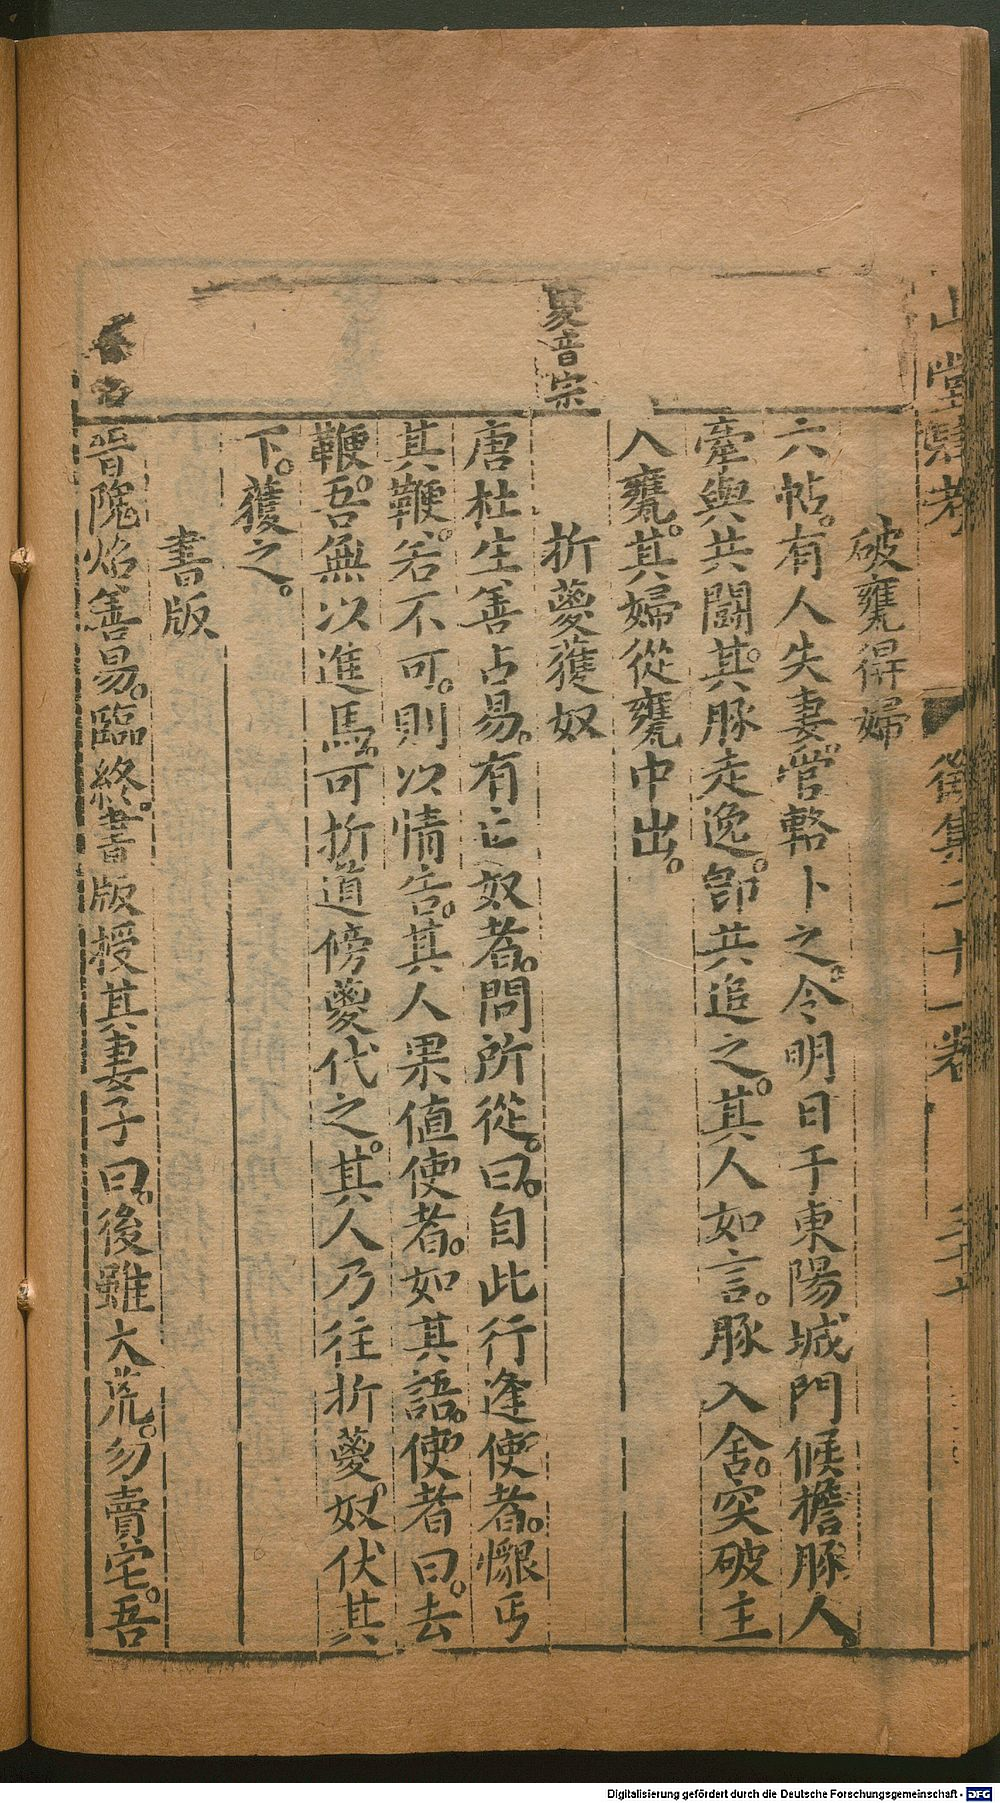 山堂肆考
徵集二十一卷
破甕得婦
六帖。有人失妻管輅卜之。令明日于東陽城門候擔豚人。
牽與共鬪。其豚走逸。卽共追之。其人如言。豚入舍。突破主
入甕。其婦從甕中出。
折藧獲奴
畧音宗
唐杜生善占易。有亡奴者。問所從。曰。自此行逢使者。懇丐
其鞭。若不可。則以情告。其人果値使者。如其語。使者曰。去
鞭。吾無以進馬。可折道傍藧代之。其人乃往折藧。奴伏其
下。獲之。
書版
晉隗炤善易。臨終。書版授其妻子曰。後雖大荒。勿賣宅。吾
Digitalisierung gefördert durch die Deutsche Forschungsgemeinschaft - DFG